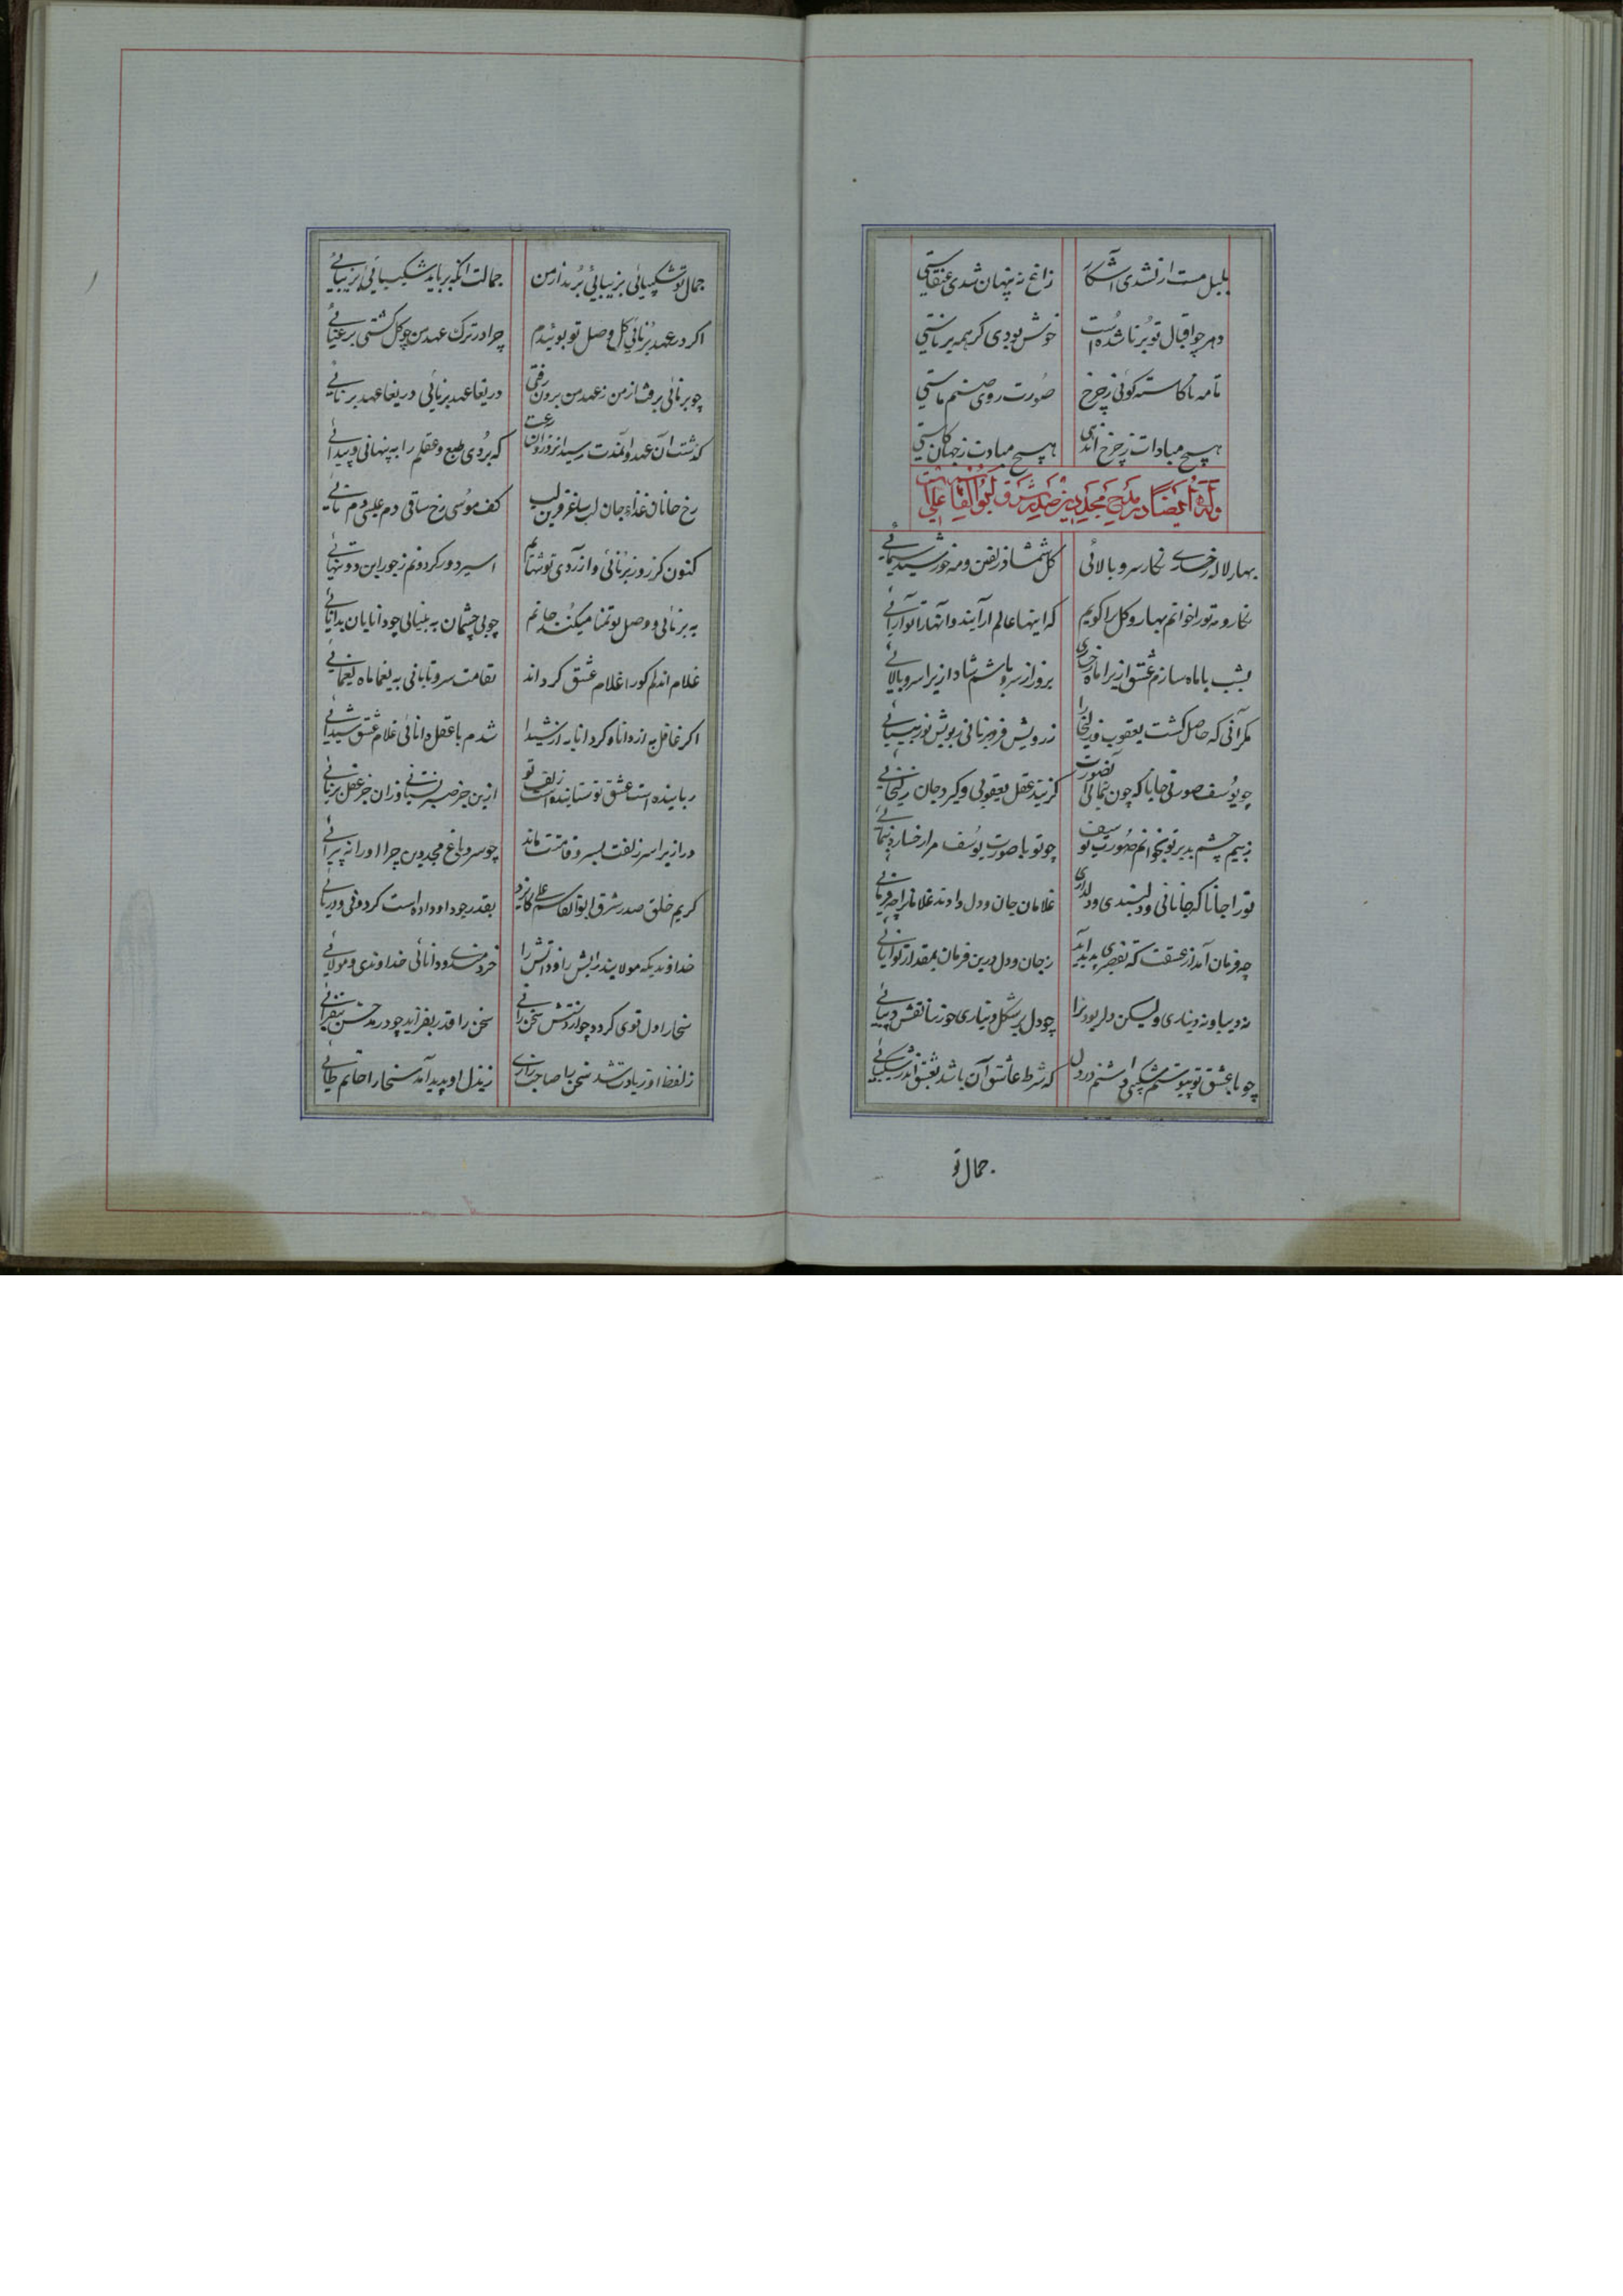 بلبل مست ار نشدی آشکار زاغ نه پنهان شدی عنقاستی
دهر چو اقبال تو برنا شده است خوش بودی گر همه برناستی
تا مه ناکاسته گوئی ز چرخ صورت روی صنم ماستی
هیچ مبادات ز چرخ اندهی هیچ مبادت ز جهان کاستی
وله ایضا در مدح مجد دین صدر شرق ابوالقاسم علی
بهار لاله رخساری نگار سرو بالائی گل شمشاد زلفین و مه خورشید سیمائی
نگار و مه تو را خوانم بهار و گل را گویم که اینها عالم آرایند و آنها را تو آرائی
بشب با ماه سازم عشق ازیرا ماه رخساری بروز از سرو باشم شاد ازیرا سرو بالائی
مگر آنی که حاصل گشت یعقوب و زلیخا را ز رویش فر برنائی ز بویش نور بینائی
چو یوسف صورتی جانا که چون بنمائی آن صورت گزیند عقل یعقوبی و گیرد جان زلیخائی
ز بیم چشم بد بر تو بخوانم صورت یوسف چو تو با صورت یوسف مرا رخساره بنمائی
تو را جانا که جانانی و دلبندی و دلداری غلامان جان و دل دادند غلامان را چه فرمائی
چه فرمان آمد از عشقت که تقصیری پدید آید ز جان و دل درین فرمان بمقدار توانائی
نه دیبا و نه دیناری ولیکن دلبر بود ترا چو دل بر شکل دیناری چو زیبا نقش دیبائی
چو با عشق تو پیوستم شکیبی داشتم در دل که شرط عاشق آن باشد بعشق اندر شکیبائی
جمال تو
جمال تو شکیبائی بزیبائی برید از من جمالت آنکه برباید شکیبائی بزیبائی
اگر در عهد برنائی گل وصل تو بوئیدم چرا در ترک عهد من چو گل گشتی برعنائی
چو برنائی برفت از من ز عهد من برون رفتی دریغا عهد برنائی دریغا عهد برنائی
گذشت آن عهد و آن مدت رسید از روزان که بردی طبع و عقلم را به پنهانی و پیدائی
رخ جانان غذاء جان لب ساغر قرین لب کف موسی رخ ساقی دم عیسی دم نائی
کنون کز روز برنائی و از روی تو تنهایم اسیر دور گردونم ز جور این دو تنهائی
به برنائی و وصل تو تمنا میکند جانم چو بی چشمان به بینائی چو نادانان بدانائی
غلام اندهم کو را غلام عشق گرداند بقامت سرو تابانی به یغما ماه یغمائی
اگر غافل به از دانا و گر دانا به از شیدا شدم با عقل و دانائی غلام عشق و شیدائی
رباینده است عشق تو ستاننده است زلف تو ازین جز صبر نستانی وزان جز عقل نربائی
دراز ایرا سر زلفت بسرو قامتت ماند چو سرو باغ مجد دین چرا او را نه پیرائی
کریم خلق صدر شرق ابوالقاسم علی کایزد بقدر جود او داده است گردونی و دریائی
خداوندیکه مولایند رایش را و ذاتش را خردمندی و دانائی خداوندی و مولائی
سخا را دل قوی گردد چو از دستش سخن رانی سخن را قدر بفزاید چو در مدحش بیفزائی
ز لفظ او زیادت شد سخن را صاحب رازی ز بذل او پدید آمد سخا را حاتم طائی